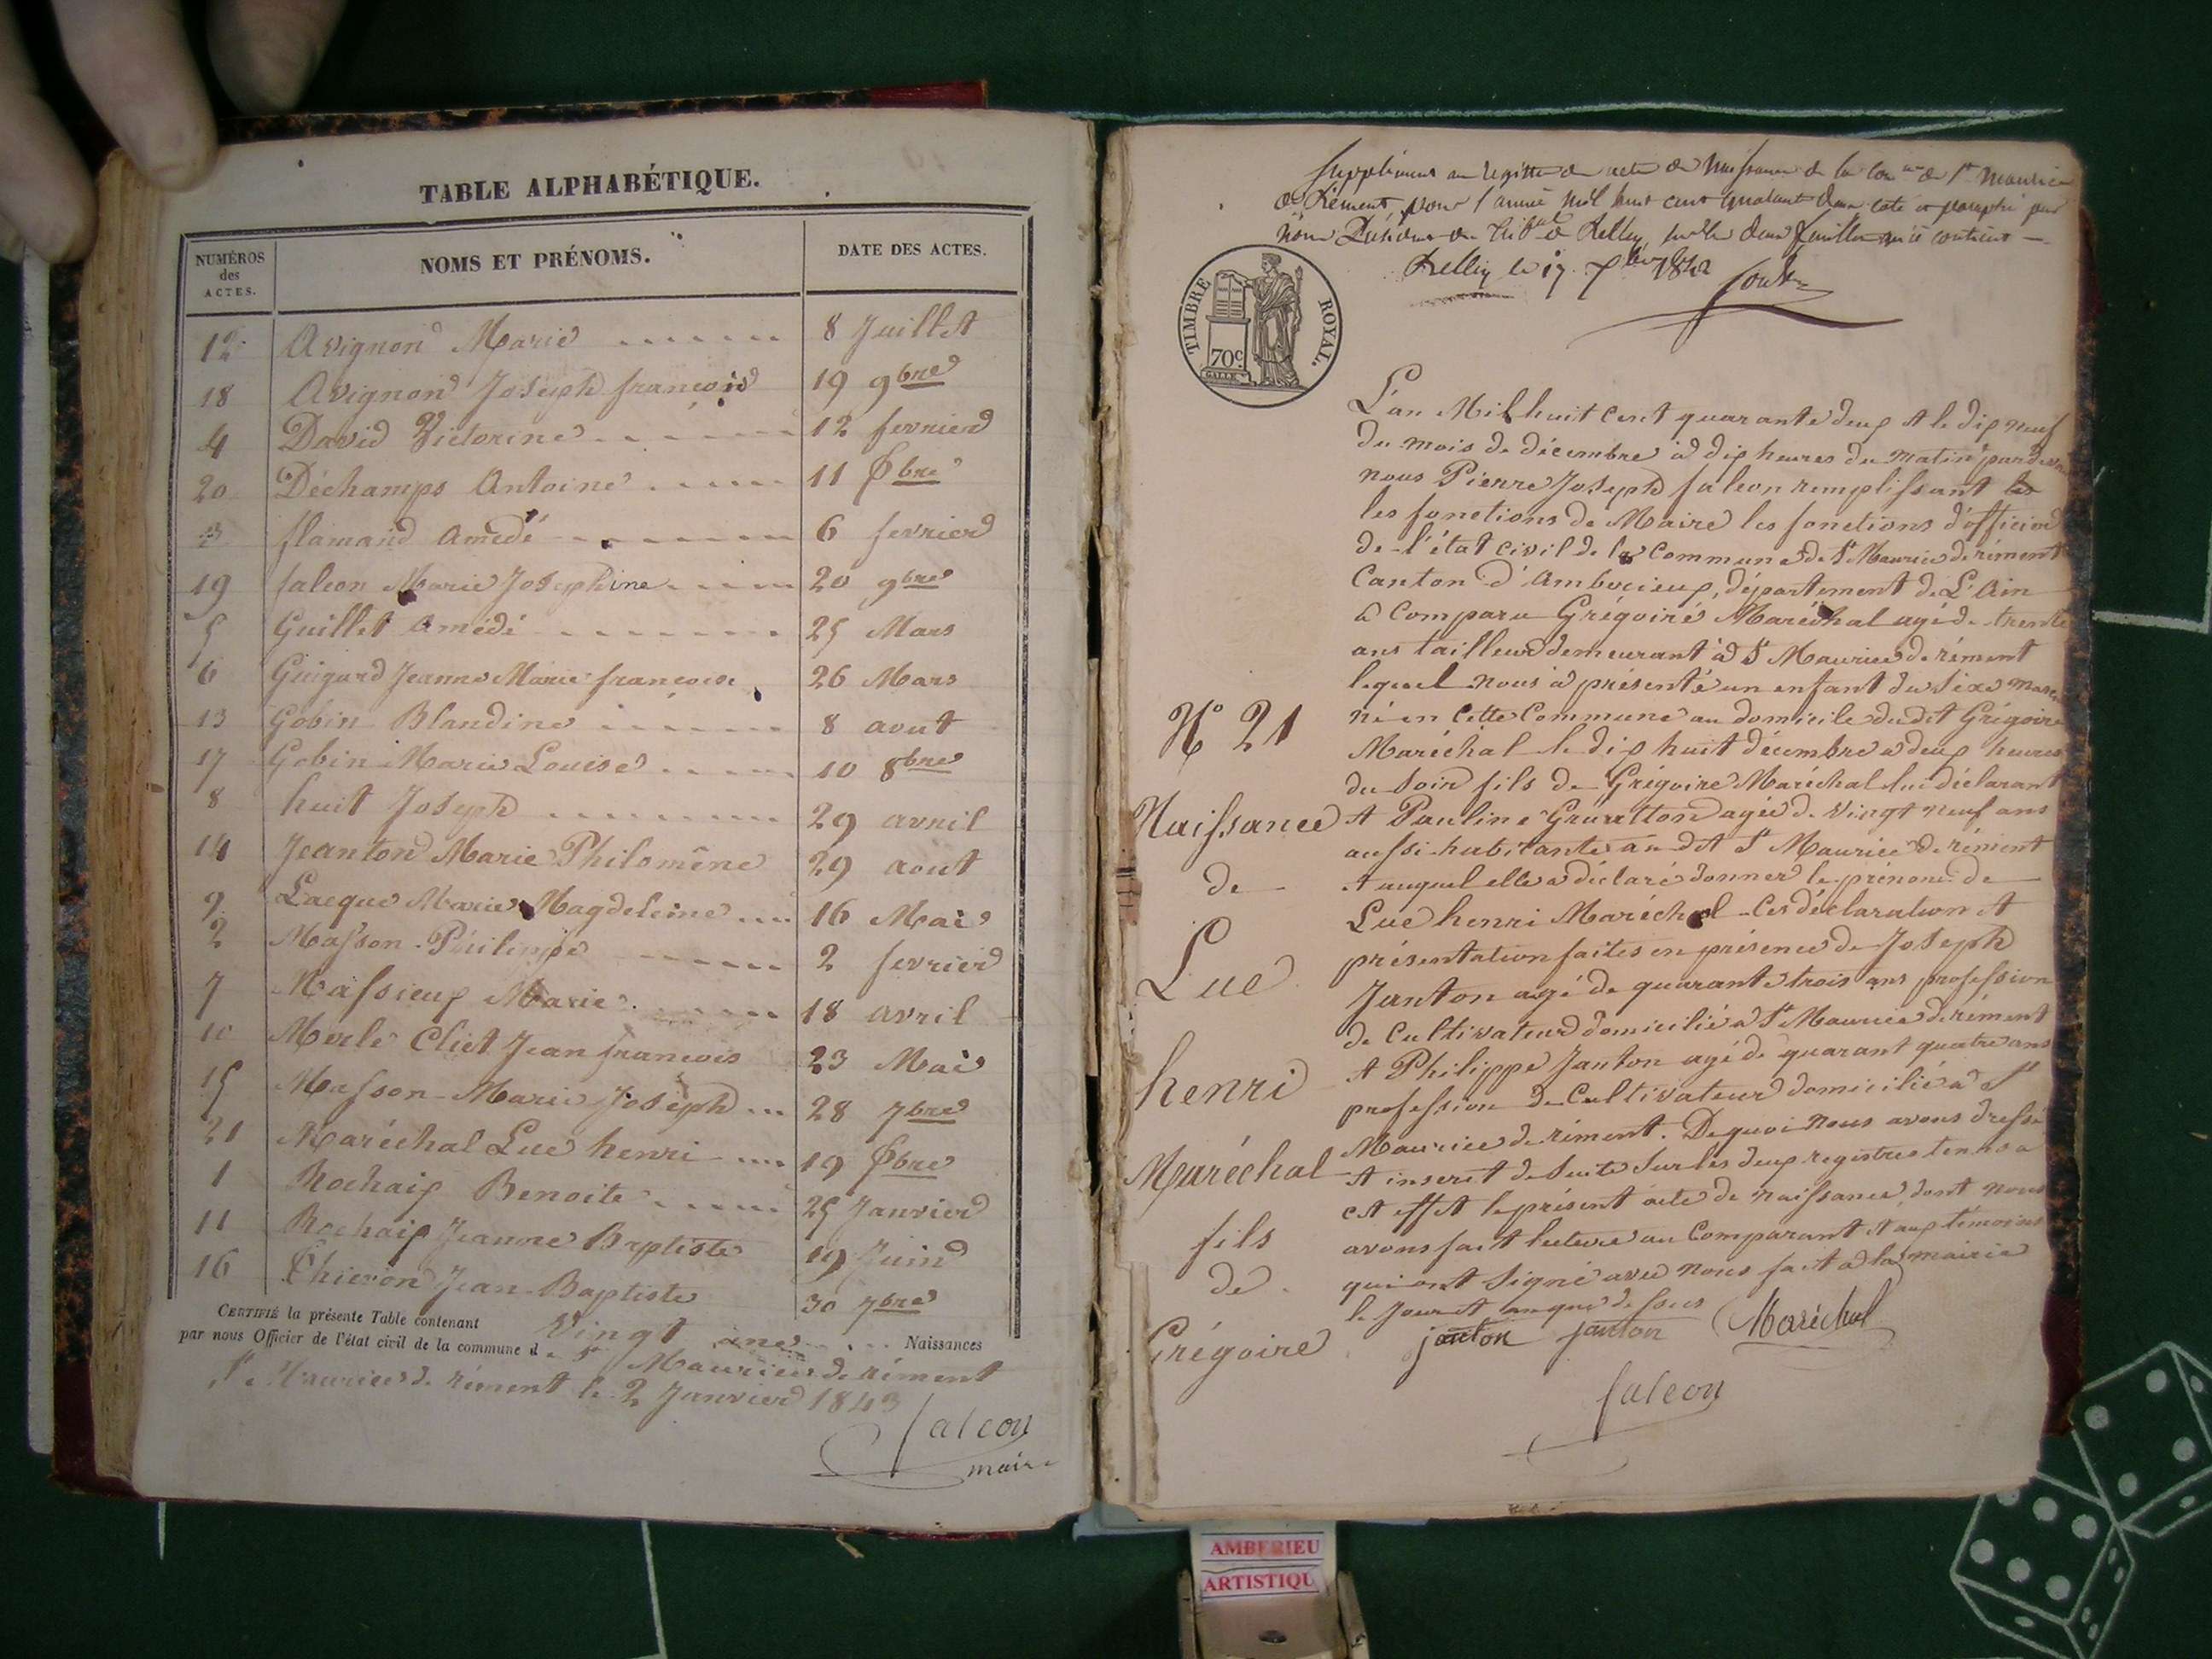 TABLE ALPHABÉTIQUE.
NUMÉROS des ACTES. NOMS ET PRÉNOMS. DATE DES ACTES.
12 Avignon Marie 8 Juillet
18 Avignon Joseph françois 19 9bre
4 David Victorine 12 fevrier
20 Déchamps Antoine 11 Xbre
3 flamand Amédé 6 fevrier
19 falcon Marie Josephine 20 9bre
5 Guillet Amédé 25 Mars
6 Guigard Jeanne Marie françoise 26 Mars
13 Gobin Blandine 8 aout
17 Gobin Marie Louise 10 8bre
8 huit Joseph 29 avril
14 Jeanton Marie Philomène 29 aout
9 Lacque Marie Magdeleine 16 Mai
2 Masson Philippe 2 fevrier
7 Massieux Marie 18 avril
10 Merle Cliet Jean francois 23 Mai
15 Masson Marie Joseph 28 7bre
21 Maréchal Luc henri 19 Xbre
1 Rochaix Benoite 25 Janvier
11 Rochaix Jeanne Baptiste 19 Juin
16 Jean Baptiste 30 7bre
CERTIFIÉ la présente Table contenant Vingt une Naissances
par nous Officier de l'état civil de la commune de St Maurice de rément
St Maurice de rément le 2 Janvier 1843
falcon
maire
Supplément au registre de acte de Naissance de la de St Maurice
de Rément pour l'année mil huit cent quarante deux coté et paraphé par
nous Président du de Belley, sur les deux feuilles qu'il contient
Belley le 17 1842
TIMBRE ROYAL.
70c
L'an Mil huit cent quarante deux et le dix neuf
du mois de décembre à dix heures du matin pardevant
nous Pierre Joseph falcon remplissant les
les fonctions de Maire les fonctions d'officier
de l'état civil de la Commune de St Maurice de rément
Canton d'Amberieux, département de L'Ain
à Comparu Grégoire Maréchal agé de trente
ans tailleur demeurant à St Maurice de rément
lequel nous à présenté un enfant du Sexe
né en cette Commune au domicile dudit Grégoire
N° 21
Maréchal le dix huit décembre a deux heures
du Soir fils de Grégoire Maréchal le déclarant
Naissance
et Pauline agée de Vingt neuf ans
aussi habitante au dit St Maurice de rément
de
et auquel elle a déclaré donner le prénom de
Luc henri Maréchal Ces déclaration et
Luc
présentation faites en présence de Joseph
Janton agé de quarante trois ans profession
de Cultivateur domicilié à St Maurice de rément
henri
et Philippe Janton agé de quarant quatre ans
profession de Cultivateur domicilié à St
Maurice de rément. De quoi nous avons dressé
Maréchal
et inscrit de Suite Sur les deux registres tenus a
cet effet le présent acte de naissance dont nous
fils
avons fait lecture au Comparant et aux témoins
de
qui ont Signé avec nous fait à la mairie
le Jour et an que de ssus
Grégoire
janton janton Maréchal
falcon
AMBERIEU
ARTISTIQU